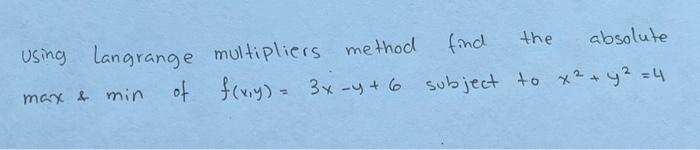 using Langrange multipliers method find the absolute
max & min of f(x,y) = 3x - y + 6 subject to x² + y² = 4